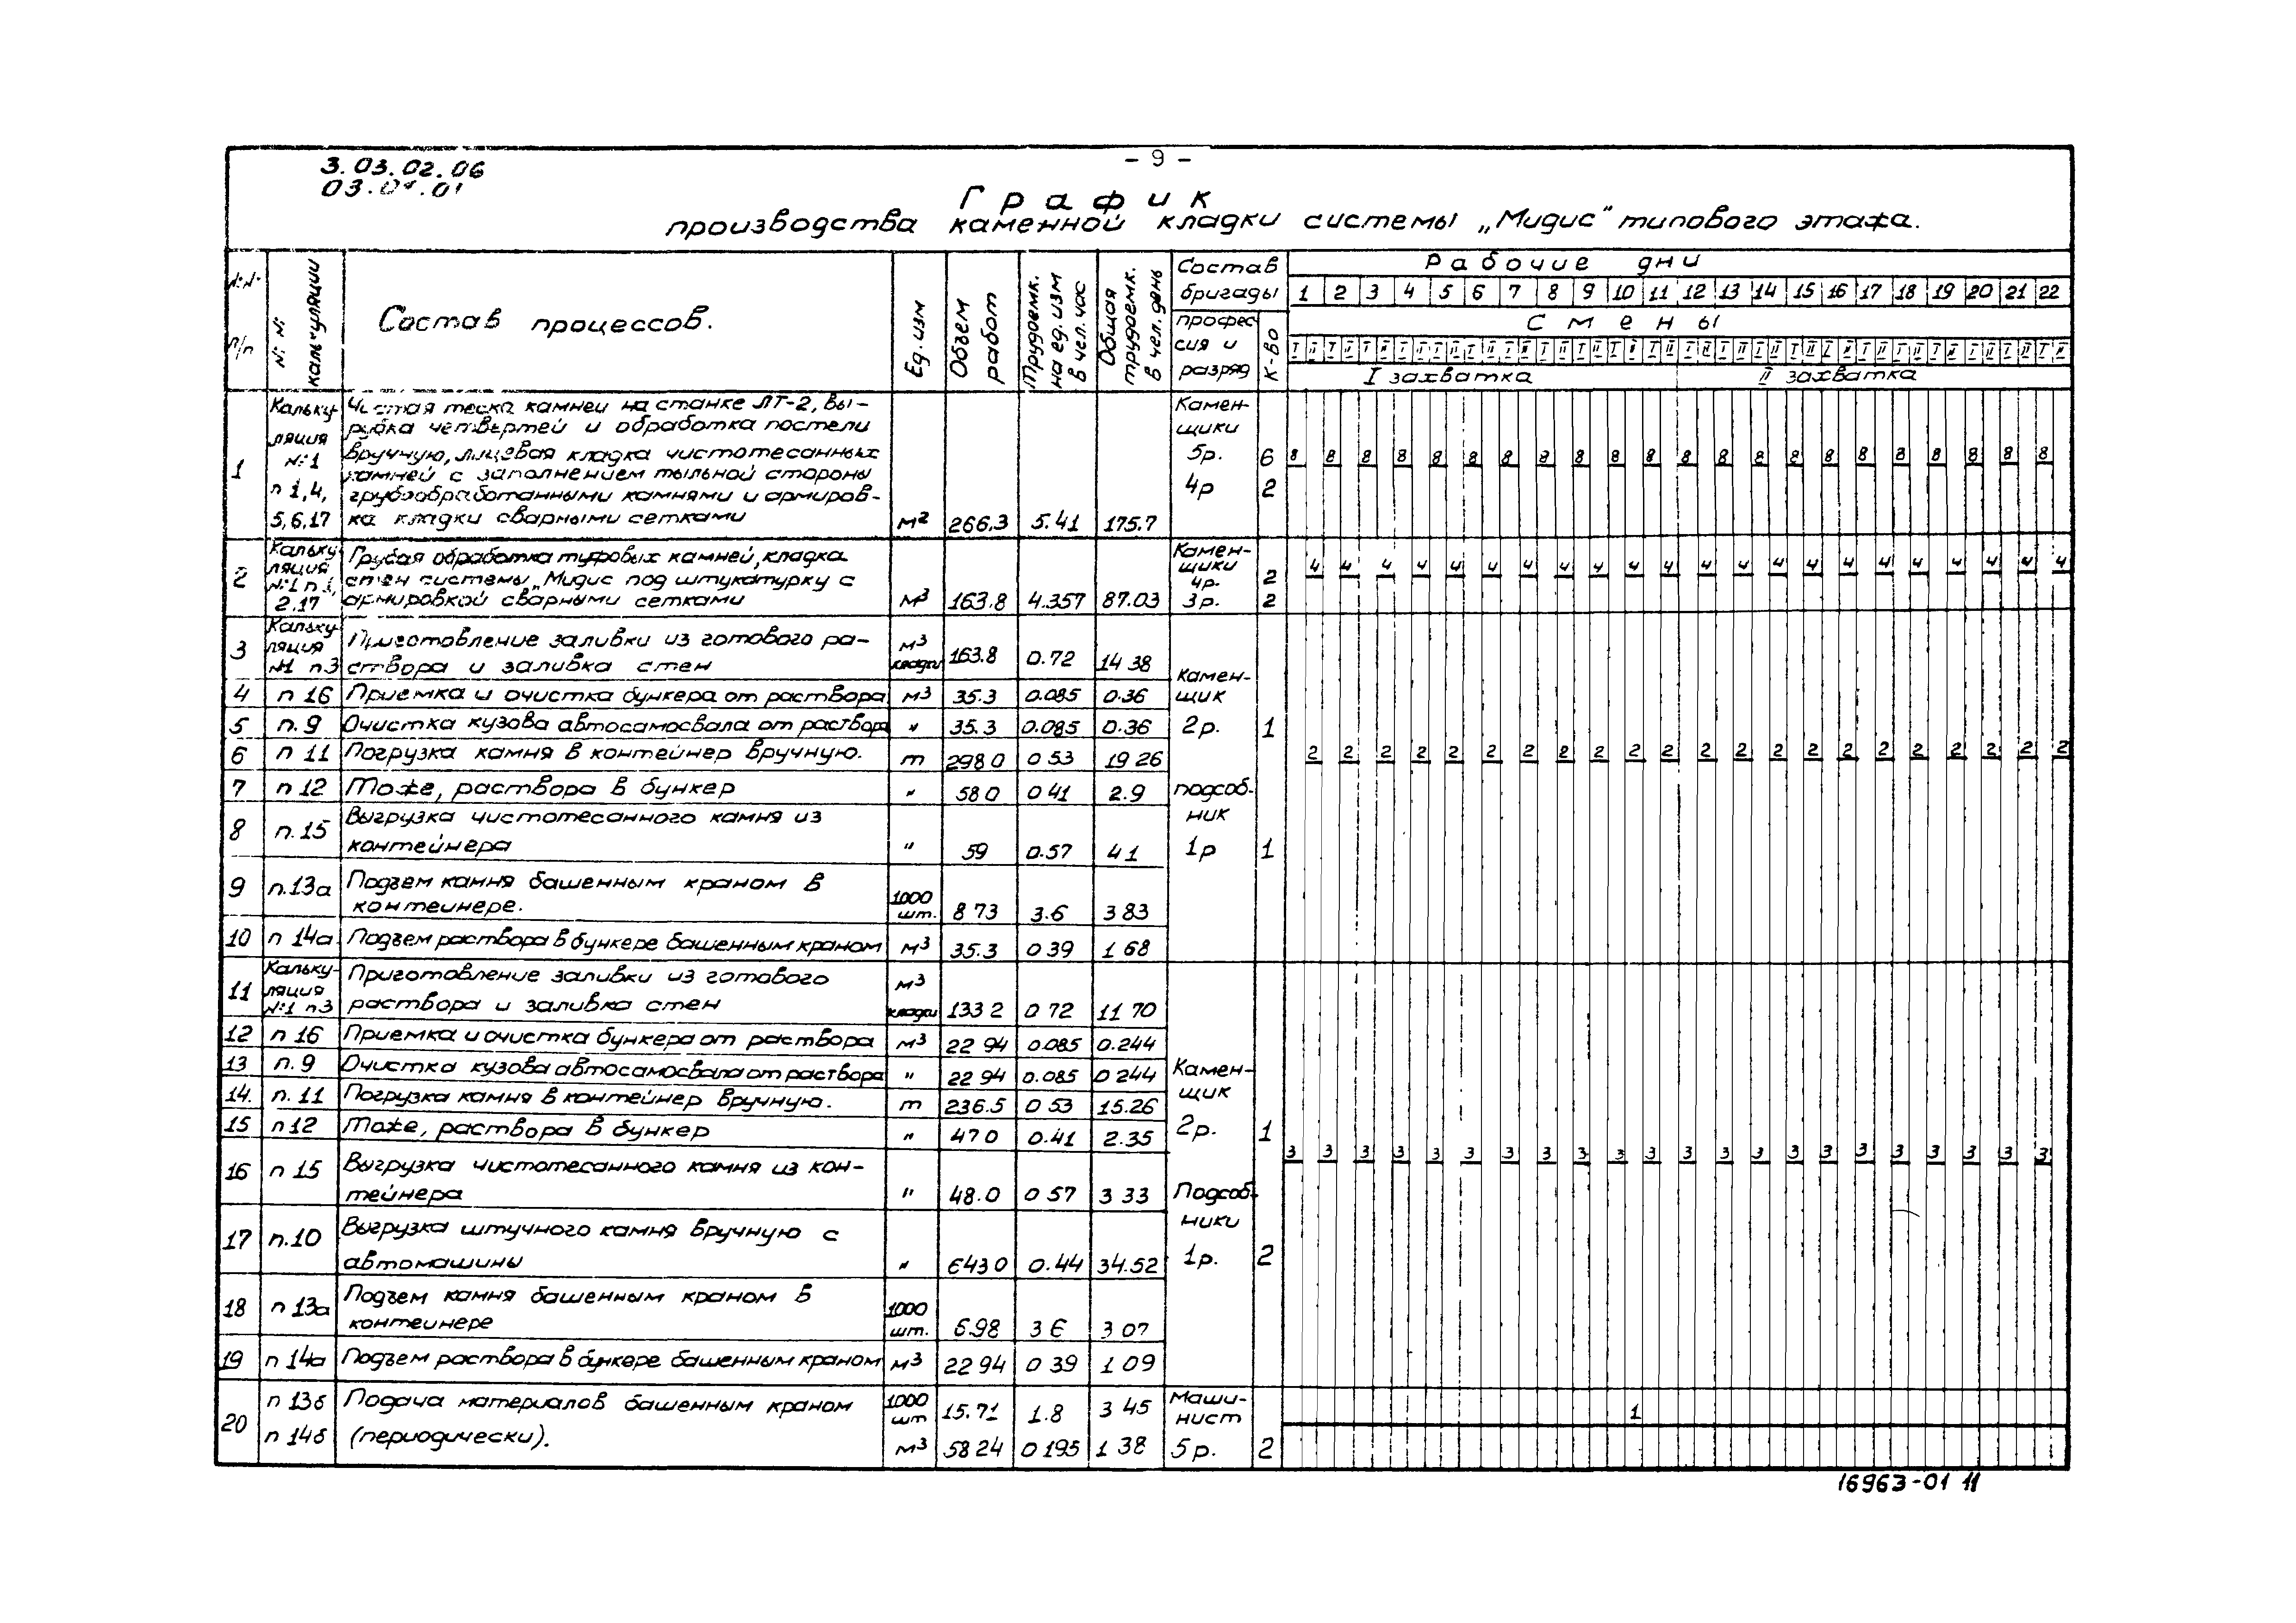 - 9 -
3. 03. 02. 06
График
производства каменной кладки системы „Мидис" типового этажа.
№№ п/п
№№ калькуляции
Состав процессов.
Ед. изм
Объем работ
Трудоемк. на ед. изм в чел. час
Общая трудоемк. в чел. день
Состав бригады
профессия и разряд
к-во
Рабочие дни
1 2 3 4 5 6 7 8 9 10 11 12 13 14 15 16 17 18 19 20 21 22
Смены
I II I II I II I II I II I II I II I II I II I II I II I II I II I II I II I II I II I II I II I II I II I II
I захватка II захватка
1
Кальку-
ляция
№1
п 1,4,
5,6,17
Чистая теска камней на станке ЛТ-2, вы-
рубка четвертей и обработка постели
вручную, лицевая кладка чистотесанных
камней с заполнением тыльной стороны
грубообработанными камнями и армиров-
ка кладки сварными сетками
м² 266.3 5.41 175.7
Камен-
щики
5р. 6
4р 2
8 8 8 8 8 8 8 8 8 8 8 8 8 8 8 8 8 8 8 8 8 8
2
Кальку-
ляция
№1 п 1,
2.17
Грубая обработка туфовых камней, кладка
стен системы „Мидис под штукатурку с
армировкой сварными сетками
м³ 163.8 4.357 87.03
Камен-
щики
4р. 2
3р. 2
4 4 4 4 4 4 4 4 4 4 4 4 4 4 4 4 4 4 4 4 4 4
3
Кальку-
ляция
№1 п3
Приготовление заливки из готового ра-
створа и заливка стен
м³
кладки 163.8 0.72 14 38
4 п 16 Приемка и очистка бункера от раствора м³ 35.3 0.085 0.36
5 п. 9 Очистка кузова автосамосвала от раствора " 35.3 0.085 0.36
6 п 11 Погрузка камня в контейнер вручную. т 298 0 0 53 19 26
7 п 12 Тоже, раствора в бункер " 58 0 0 41 2.9
8 п. 15 Выгрузка чистотесанного камня из
контейнера " 59 0.57 4 1
9 п.13а Подъем камня башенным краном в
контейнере. 1000
шт. 8 73 3.6 3 83
10 п 14а Подъем раствора в бункере башенным краном м³ 35.3 0 39 1 68
Камен-
щик
2р. 1
подсоб-
ник
1р 1
2 2 2 2 2 2 2 2 2 2 2 2 2 2 2 2 2 2 2 2 2 2
11
Кальку-
ляция
№1 п3
Приготовление заливки из готового
раствора и заливка стен
м³
кладки 133 2 0 72 11 70
12 п 16 Приемка и очистка бункера от раствора м³ 22 94 0.085 0.244
13 п. 9 Очистка кузова автосамосвала от раствора " 22 94 0.085 0 244
14. п. 11 Погрузка камня в контейнер вручную. т 236.5 0 53 15.26
15 п 12 Тоже, раствора в бункер " 47 0 0.41 2.35
16 п 15 Выгрузка чистотесанного камня из кон-
тейнера " 48.0 0 57 3 33
17 п.10 Выгрузка штучного камня вручную с
автомашины " 643 0 0.44 34.52
18 п 13а Подъем камня башенным краном в
контейнере 1000
шт. 6.98 3 6 3 07
19 п 14а Подъем раствора в бункере башенным краном м³ 22 94 0 39 1 09
Камен-
щик
2р. 1
Подсоб-
ники
1р. 2
3 3 3 3 3 3 3 3 3 3 3 3 3 3 3 3 3 3 3 3 3 3
20
п 13б Подача материалов башенным краном 1000
шт 15.71 1.8 3 45
п 14б (периодически). м³ 58 24 0 195 1 38
Маши-
нист
5р. 2
1
16963-01 11